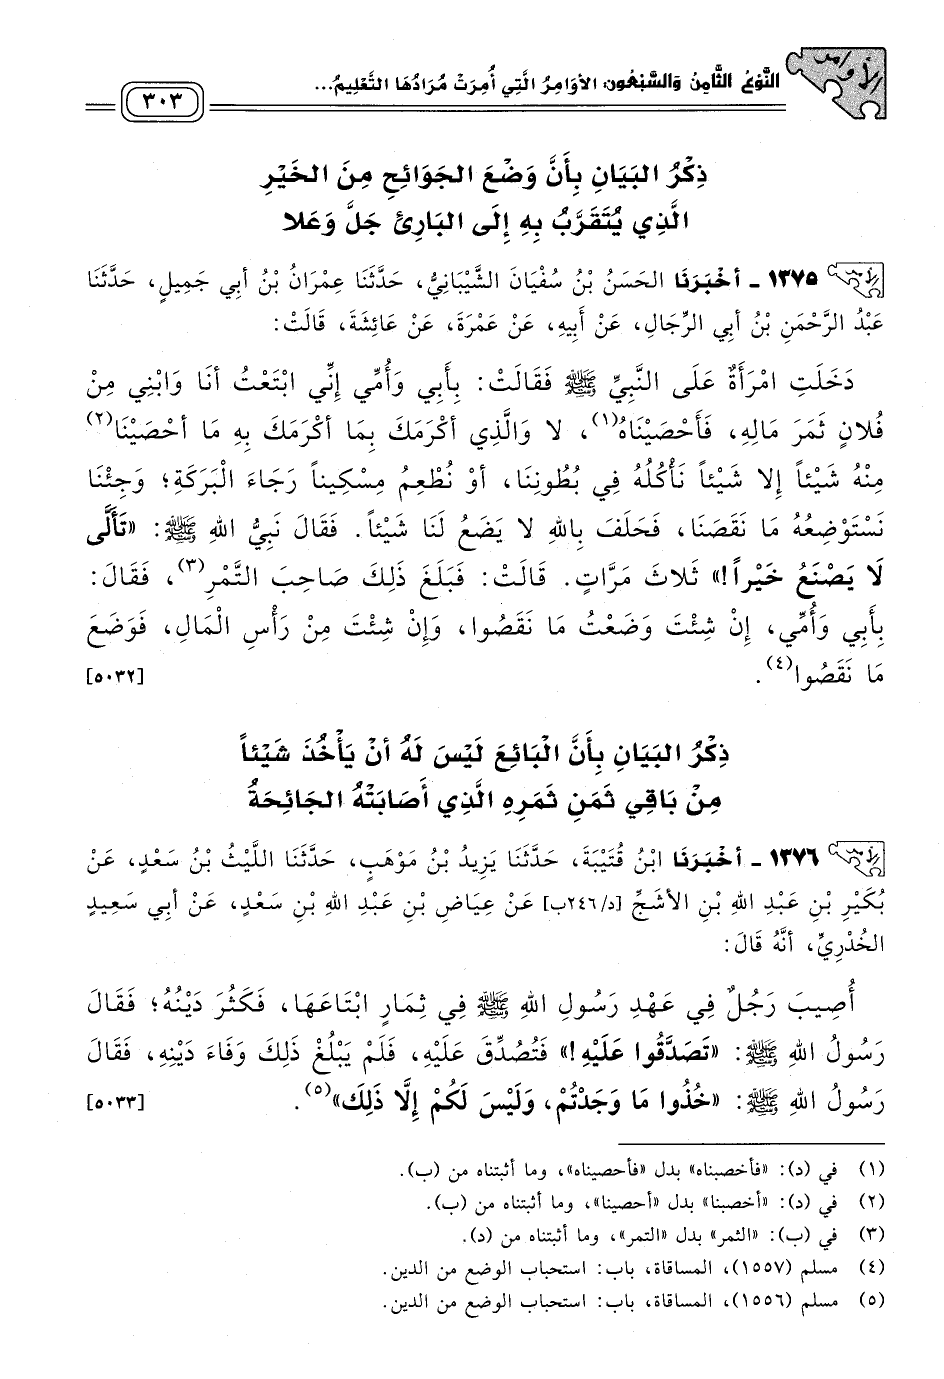 الأوامر
النَّوْعُ الثَّامِنُ وَالسَّبْعُونَ: الأَوَامِرُ الَّتِي أُمِرَتْ مُرَادُهَا التَّعْلِيمُ...
٣٠٣
ذِكْرُ البَيَانِ بِأَنَّ وَضْعَ الجَوَائِحِ مِنَ الخَيْرِ
الَّذِي يُتَقَرَّبُ بِهِ إِلَى البَارِئِ جَلَّ وَعَلا
١٣٧٥ - أَخْبَرَنَا الحَسَنُ بْنُ سُفْيَانَ الشَّيْبَانِيُّ، حَدَّثَنَا عِمْرَانُ بْنُ أَبِي جَمِيلٍ، حَدَّثَنَا
عَبْدُ الرَّحْمَنِ بْنُ أَبِي الرِّجَالِ، عَنْ أَبِيهِ، عَنْ عَمْرَةَ، عَنْ عَائِشَةَ، قَالَتْ:
دَخَلَتِ امْرَأَةٌ عَلَى النَّبِيِّ ﷺ فَقَالَتْ: بِأَبِي وَأُمِّي إِنِّي ابْتَعْتُ أَنَا وَابْنِي مِنْ
فُلانٍ ثَمَرَ مَالِهِ، فَأَحْصَيْنَاهُ(١)، لا وَالَّذِي أَكْرَمَكَ بِمَا أَكْرَمَكَ بِهِ مَا أَحْصَيْنَا(٢)
مِنْهُ شَيْئاً إِلا شَيْئاً نَأْكُلُهُ فِي بُطُونِنَا، أَوْ نُطْعِمُ مِسْكِيناً رَجَاءَ الْبَرَكَةِ؛ وَجِئْنَا
نَسْتَوْضِعُهُ مَا نَقَصَنَا، فَحَلَفَ بِاللهِ لا يَضَعُ لَنَا شَيْئاً. فَقَالَ نَبِيُّ اللهِ ﷺ: «تَأَلَّى
لَا يَصْنَعُ خَيْراً!» ثَلاثَ مَرَّاتٍ. قَالَتْ: فَبَلَغَ ذَلِكَ صَاحِبَ التَّمْرِ(٣)، فَقَالَ:
بِأَبِي وَأُمِّي، إِنْ شِئْتَ وَضَعْتُ مَا نَقَصُوا، وَإِنْ شِئْتَ مِنْ رَأْسِ الْمَالِ، فَوَضَعَ
مَا نَقَصُوا(٤). [٥٠٣٢]
ذِكْرُ البَيَانِ بِأَنَّ الْبَائِعَ لَيْسَ لَهُ أَنْ يَأْخُذَ شَيْئاً
مِنْ بَاقِي ثَمَنِ ثَمَرِهِ الَّذِي أَصَابَتْهُ الجَائِحَةُ
١٣٧٦ - أَخْبَرَنَا ابْنُ قُتَيْبَةَ، حَدَّثَنَا يَزِيدُ بْنُ مَوْهَبٍ، حَدَّثَنَا اللَّيْثُ بْنُ سَعْدٍ، عَنْ
بُكَيْرِ بْنِ عَبْدِ اللهِ بْنِ الأَشَجِّ [د/٢٤٦ب] عَنْ عِيَاضِ بْنِ عَبْدِ اللهِ بْنِ سَعْدٍ، عَنْ أَبِي سَعِيدٍ
الخُدْرِيِّ، أَنَّهُ قَالَ:
أُصِيبَ رَجُلٌ فِي عَهْدِ رَسُولِ اللهِ ﷺ فِي ثِمَارٍ ابْتَاعَهَا، فَكَثُرَ دَيْنُهُ؛ فَقَالَ
رَسُولُ اللهِ ﷺ: «تَصَدَّقُوا عَلَيْهِ!» فَتُصُدِّقَ عَلَيْهِ، فَلَمْ يَبْلُغْ ذَلِكَ وَفَاءَ دَيْنِهِ، فَقَالَ
رَسُولُ اللهِ ﷺ: «خُذُوا مَا وَجَدْتُمْ، وَلَيْسَ لَكُمْ إِلَّا ذَلِكَ»(٥). [٥٠٣٣]
(١) في (د): «فأخصبناه» بدل «فأحصيناه»، وما أثبتناه من (ب).
(٢) في (د): «أخصبنا» بدل «أحصينا»، وما أثبتناه من (ب).
(٣) في (ب): «الثمر» بدل «التمر»، وما أثبتناه من (د).
(٤) مسلم (١٥٥٧)، المساقاة، باب: استحباب الوضع من الدين.
(٥) مسلم (١٥٥٦)، المساقاة، باب: استحباب الوضع من الدين.